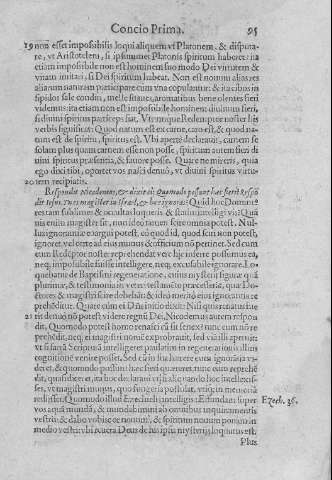 Concio Prima. 95
19 non esset impossibilis loqui aliquem vt Platonem, & disputa-
re, vt Aristotelem, si ipsummet Platonis spiritum haberet: ita
etiam impossibile non est hominem suo modo Dei virtutem &
vitam imitari, si Dei spiritum habeat. Non est nouum alias res
aliarum naturam participare cum vna copulantur: & ita cibos in
sipidos sale condiri, melle
videmus: ita etiam non est impossibile hominem diuinum fieri,
si diuini spiritus particeps fiat. Vtrumque Redemptor noster his
verbis significat: Quod natum est ex carne, caro est, & quod na-
tum est de spiritu, spiritus est. Vbi aperte declarat, carnem se
solam plus quam carnem esse non posse, spiritum autem fieri di
uini spiritus præsentia, & fauore posse. Quare ne mireris, quia
ego dixi tibi, oportet vos nasci denuo, vt diuini spiritus virtu-
20 tem recipiatis.
Respondit Nicodemus, & dixit ei: Quomodo possunt hæc fieri? Respō
dit Iesus, Tu es magister in Israel, & hæc ignoras? Quid hoc Domine?
res tam sublimes & occultas loqueris, & statim intelligi vis? Quā
uis enim magister sit, non ideo tamen scire omnia potest. Nul-
lus ignorantiæ argui potest, eò quod id, quod sciri non potest,
ignoret, vel certe ad eius munus & officium nō pertinet. Sed cum
eum Redēptor noster reprehendat, vere hic inferre possumus, ea
neq; impossibile fuisse intelligere, neq; excusabile ignorare. Lo-
quebatur de Baptismi regeneratione, cuius mysterij figuræ quā
plurimæ, & testimonia in veteri testamēto præcesserāt, quæ Do-
ctores & magistri scire debebāt: & ideo merito eius ignorantia re
prehēditur. Quare cum ei Dñs initio dixit: Nisi quis renatus fue
21 rit denuo nō potest videre regnū Dei, Nicodemus autem respon
dit, Quomodo potest homo renasci cū sit senex? nunc cum nō re
prehēdit, neq; ei magistri nomē exprobrauit, sed viā illi aperuit
vt si sacrā Scripturā intelligeret paulatim in regenerationis illius
cognitionē venire posset. Sed cū in sua hærere eum ignorātia vi-
deret, & quomodo possunt hæc fieri quæreret, nunc eum reprehē
dit,
set, vt magistri munus, quo fungeris postulat, vtiq; in memoriā
redisset Quomodo illud Ezechielis intelligis: Effundam super Ezech. 36.
vos aquā mundā, & mundabimini ab omnibus inquinamentis
vestris, & dabo vobis cor nouum, & spiritum nouum ponam in
medio vestri: vbi reuera Deus de his ipsis mysterijs loquutus est.
Plus